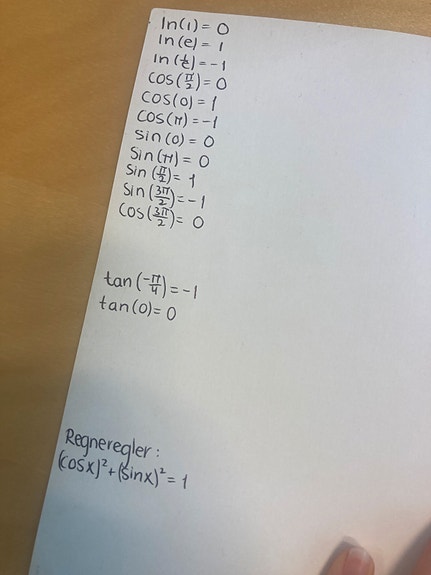 ln(1) = 0
ln(e) = 1
ln(1/e) = -1
cos(π/2) = 0
cos(0) = 1
cos(π) = -1
sin(0) = 0
sin(π) = 0
sin(π/2) = 1
sin(3π/2) = -1
cos(3π/2) = 0
tan(-π/4) = -1
tan(0) = 0
Regneregler:
(cosx)² + (sinx)² = 1